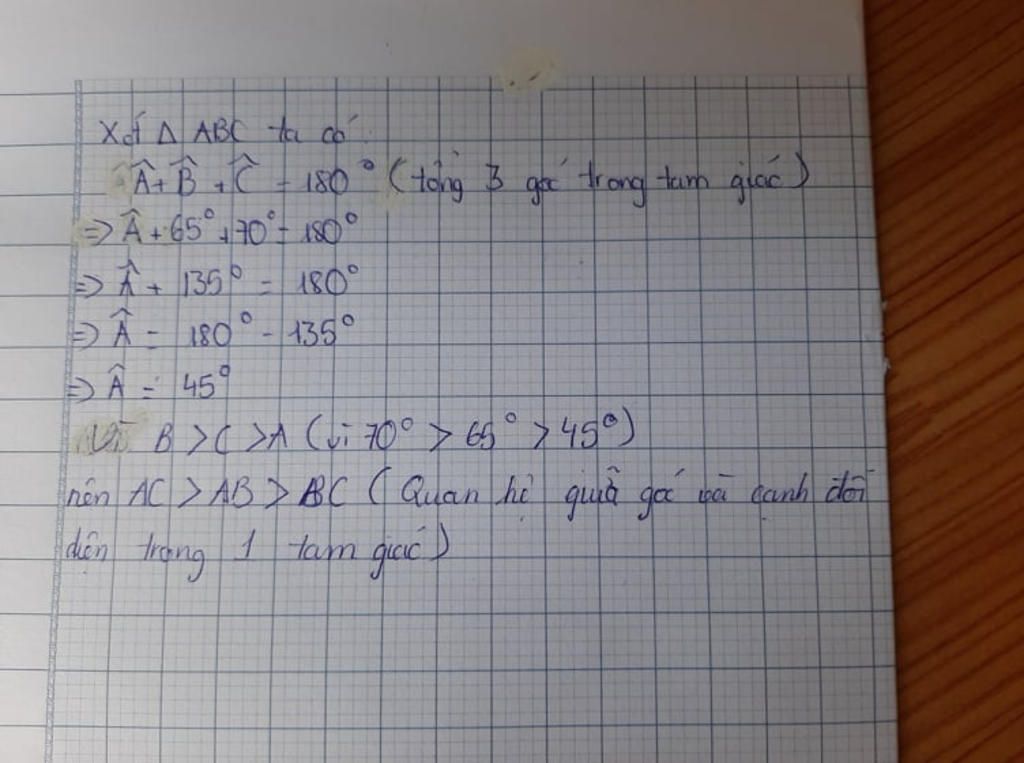 Xét Δ ABC ta có:
Â + B̂ + Ĉ = 180° (tổng 3 góc trong tam giác)
=> Â + 65° + 70° = 180°
=> Â + 135° = 180°
=> Â = 180° - 135°
=> Â = 45°
Vì B > C > A (vì 70° > 65° > 45°)
nên AC > AB > BC (Quan hệ giữa góc và cạnh đối
diện trong 1 tam giác)